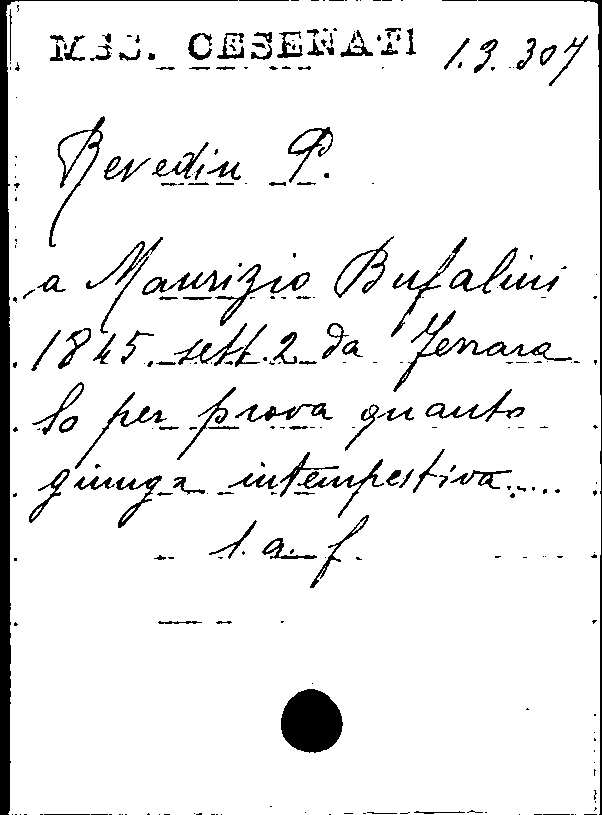 MSS. CESENATI 1.3.307
Revedin P.
a Maurizio Bufalini
1845. sett. 2. da Ferrara
So per prova quanto
giunga intempestiva.....
l. a. f.